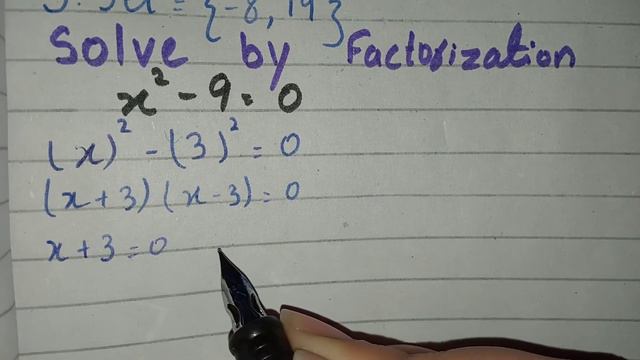 = {-8, 19}
Solve by Factorization
x² - 9 = 0
(x)² - (3)² = 0
(x + 3) (x - 3) = 0
x + 3 = 0